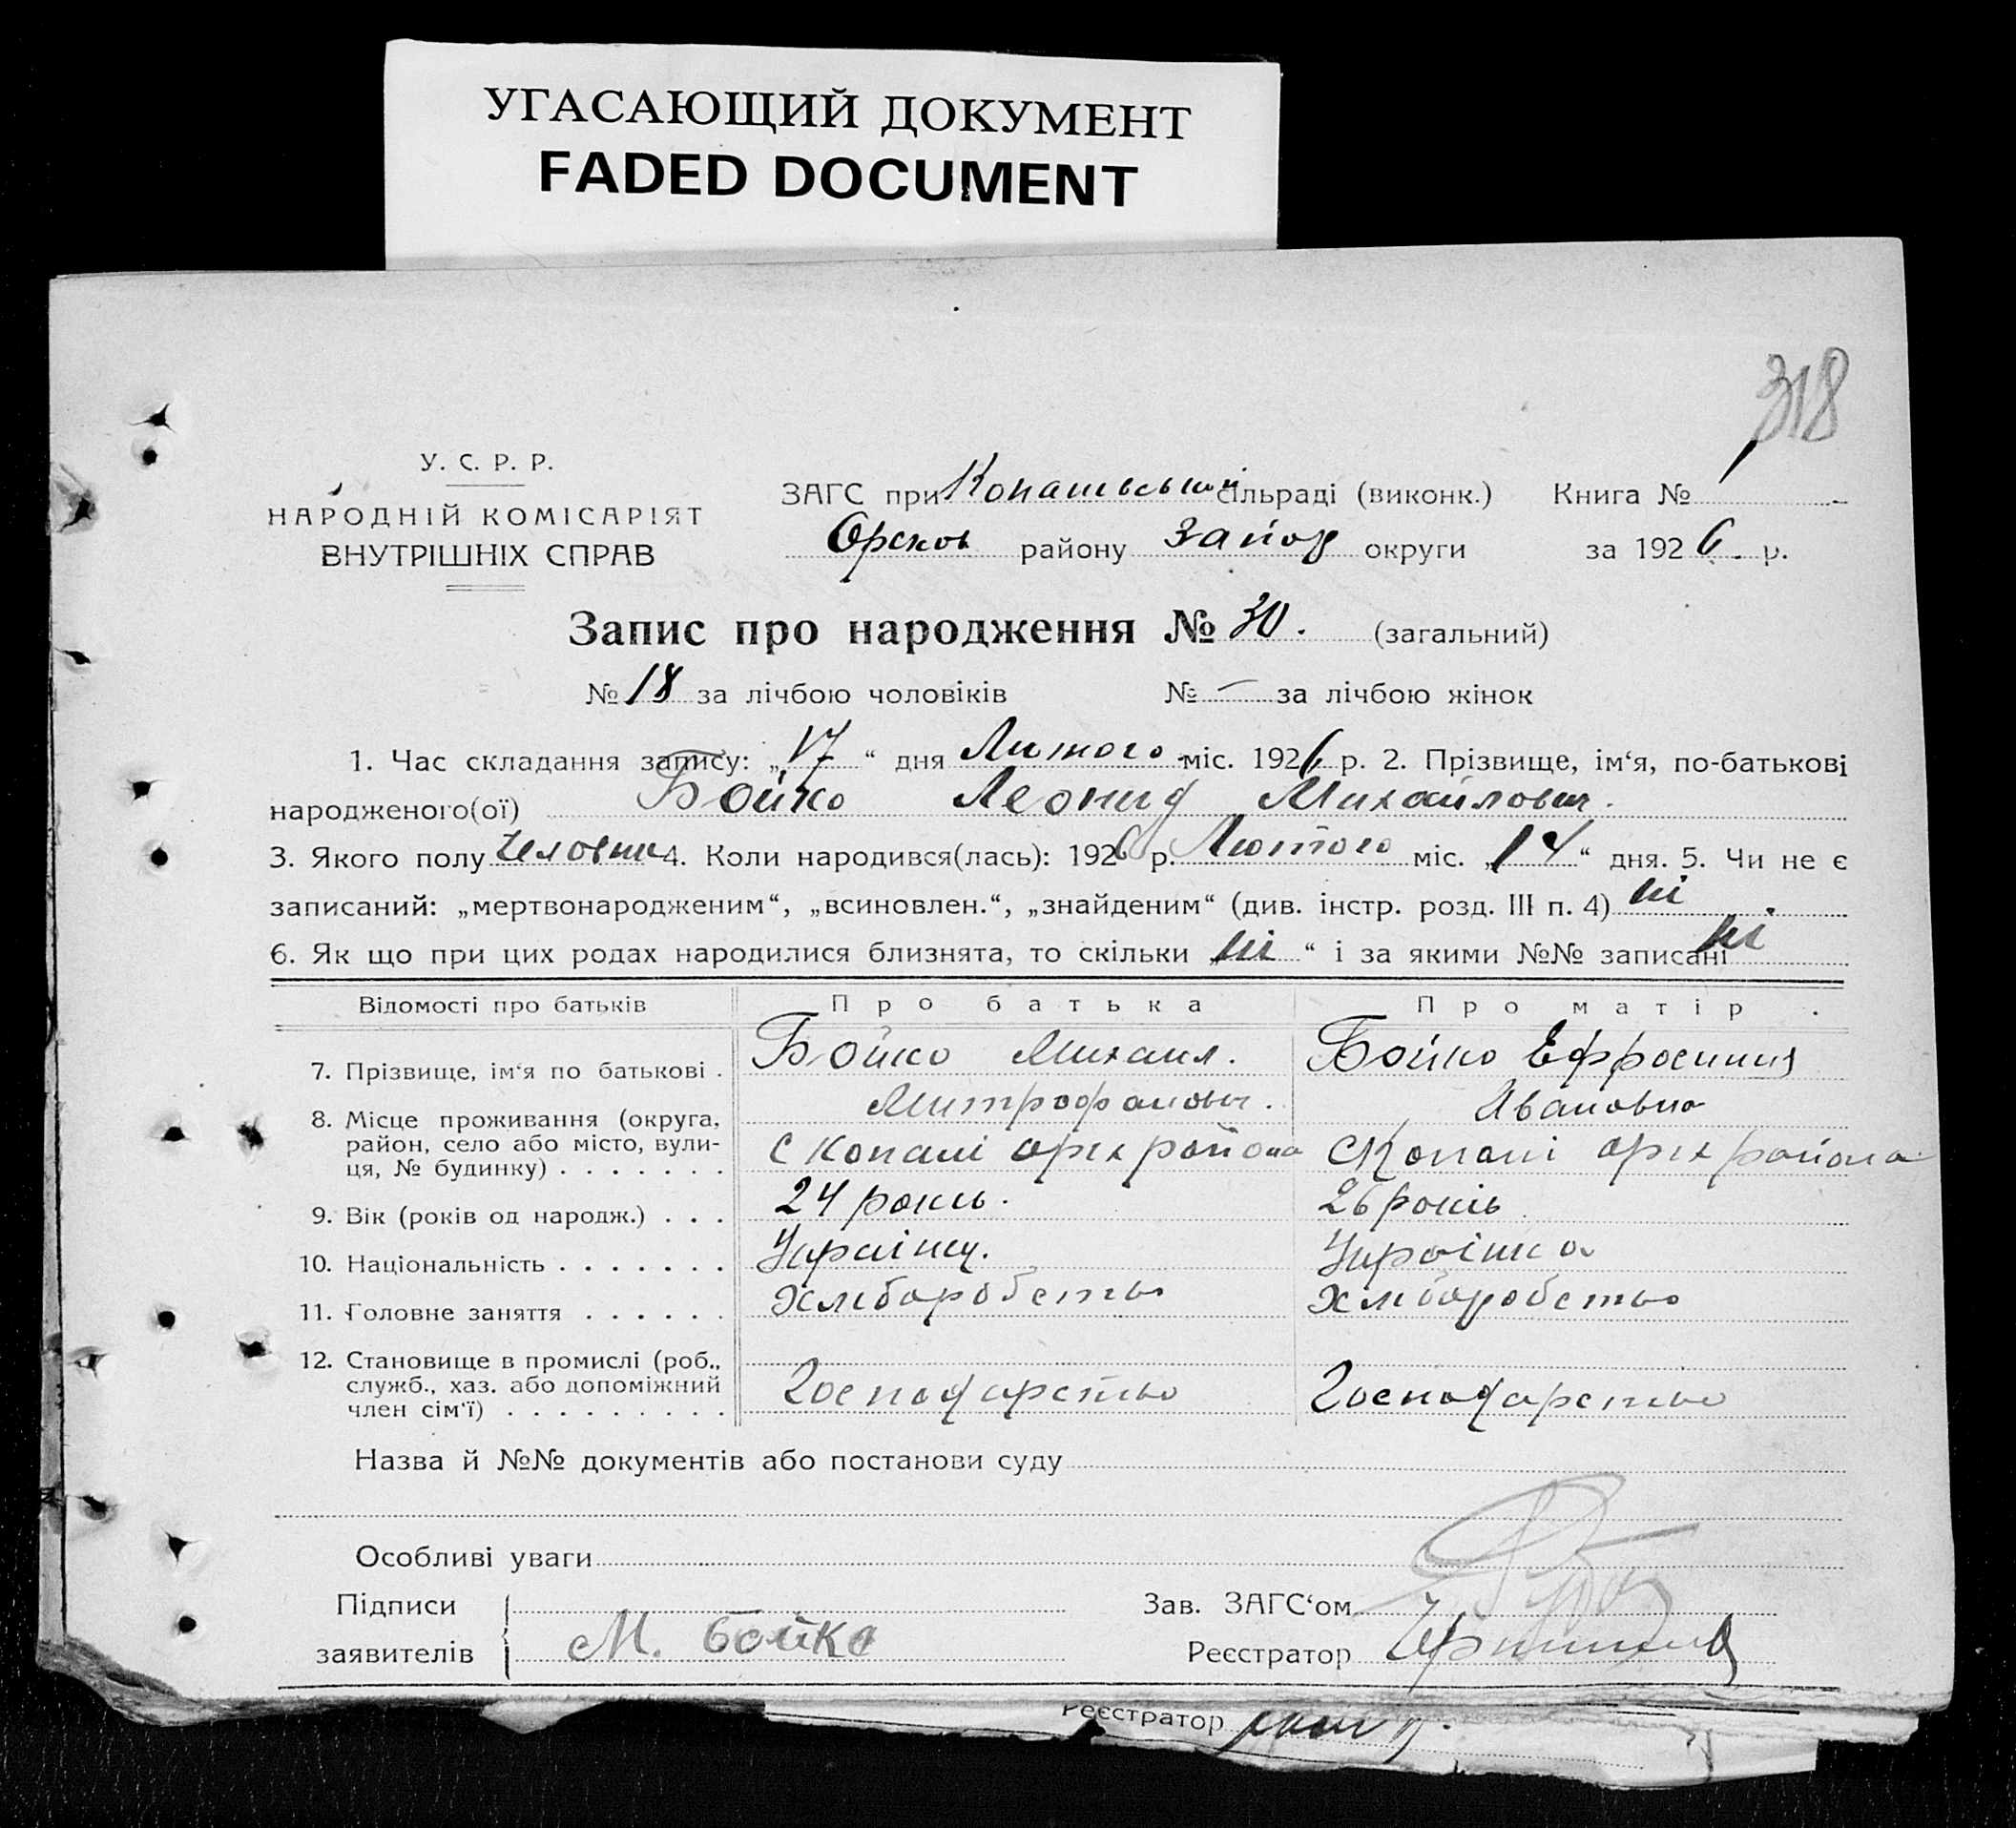 УГАСАЮЩИЙ ДОКУМЕНТ
FADED DOCUMENT
318
У. С. Р. Р.
НАРОДНІЙ КОМІСАРІЯТ
ВНУТРІШНІХ СПРАВ
ЗАГС при сільраді (виконк.) Книга № 1
району Запор округи за 1926. р.
Запис про народження № 30. (загальний)
№ 18 за лічбою чоловіків № — за лічбою жінок
1. Час складання запису: „17“ дня Лютого міс. 1926 р. 2. Прізвище, ім‘я, по-батькові
народженого(ої) Бойко Леонид Михайлович.
3. Якого полу 4. Коли народився(лась): 1926 р. Лютого міс. „14“ дня. 5. Чи не є
записаний: „мертвонародженим“, „всиновлен.“, „знайденим“ (див. інстр. розд. III п. 4) ні.
6. Як що при цих родах народилися близнята, то скільки „ні“ і за якими №№ записані ні
Відомості про батьків Про батька Про матір
7. Прізвище, ім‘я по батькові . Бойко Михаил. Бойко Ефросиния
Митрофанович. Ивановна
8. Місце проживання (округа, район, село або місто, вулиця, № будинку) . . . . . . . с Копані оріх района с Копані оріх района
9. Вік (років од народж.) . . . 24 років. 26 років
10. Національність . . . . . . . Україн. Українка
11. Головне заняття . . . . . . Хліборобство Хліборобство
12. Становище в промислі (роб., служб., хаз. або допоміжний член сім‘ї) . . . . . . . . . Господарство Господарство
Назва й №№ документів або постанови суду
Особливі уваги
Підписи заявителів М. Бойко
Зав. ЗАГС‘ом
Реєстратор
Реєстратор